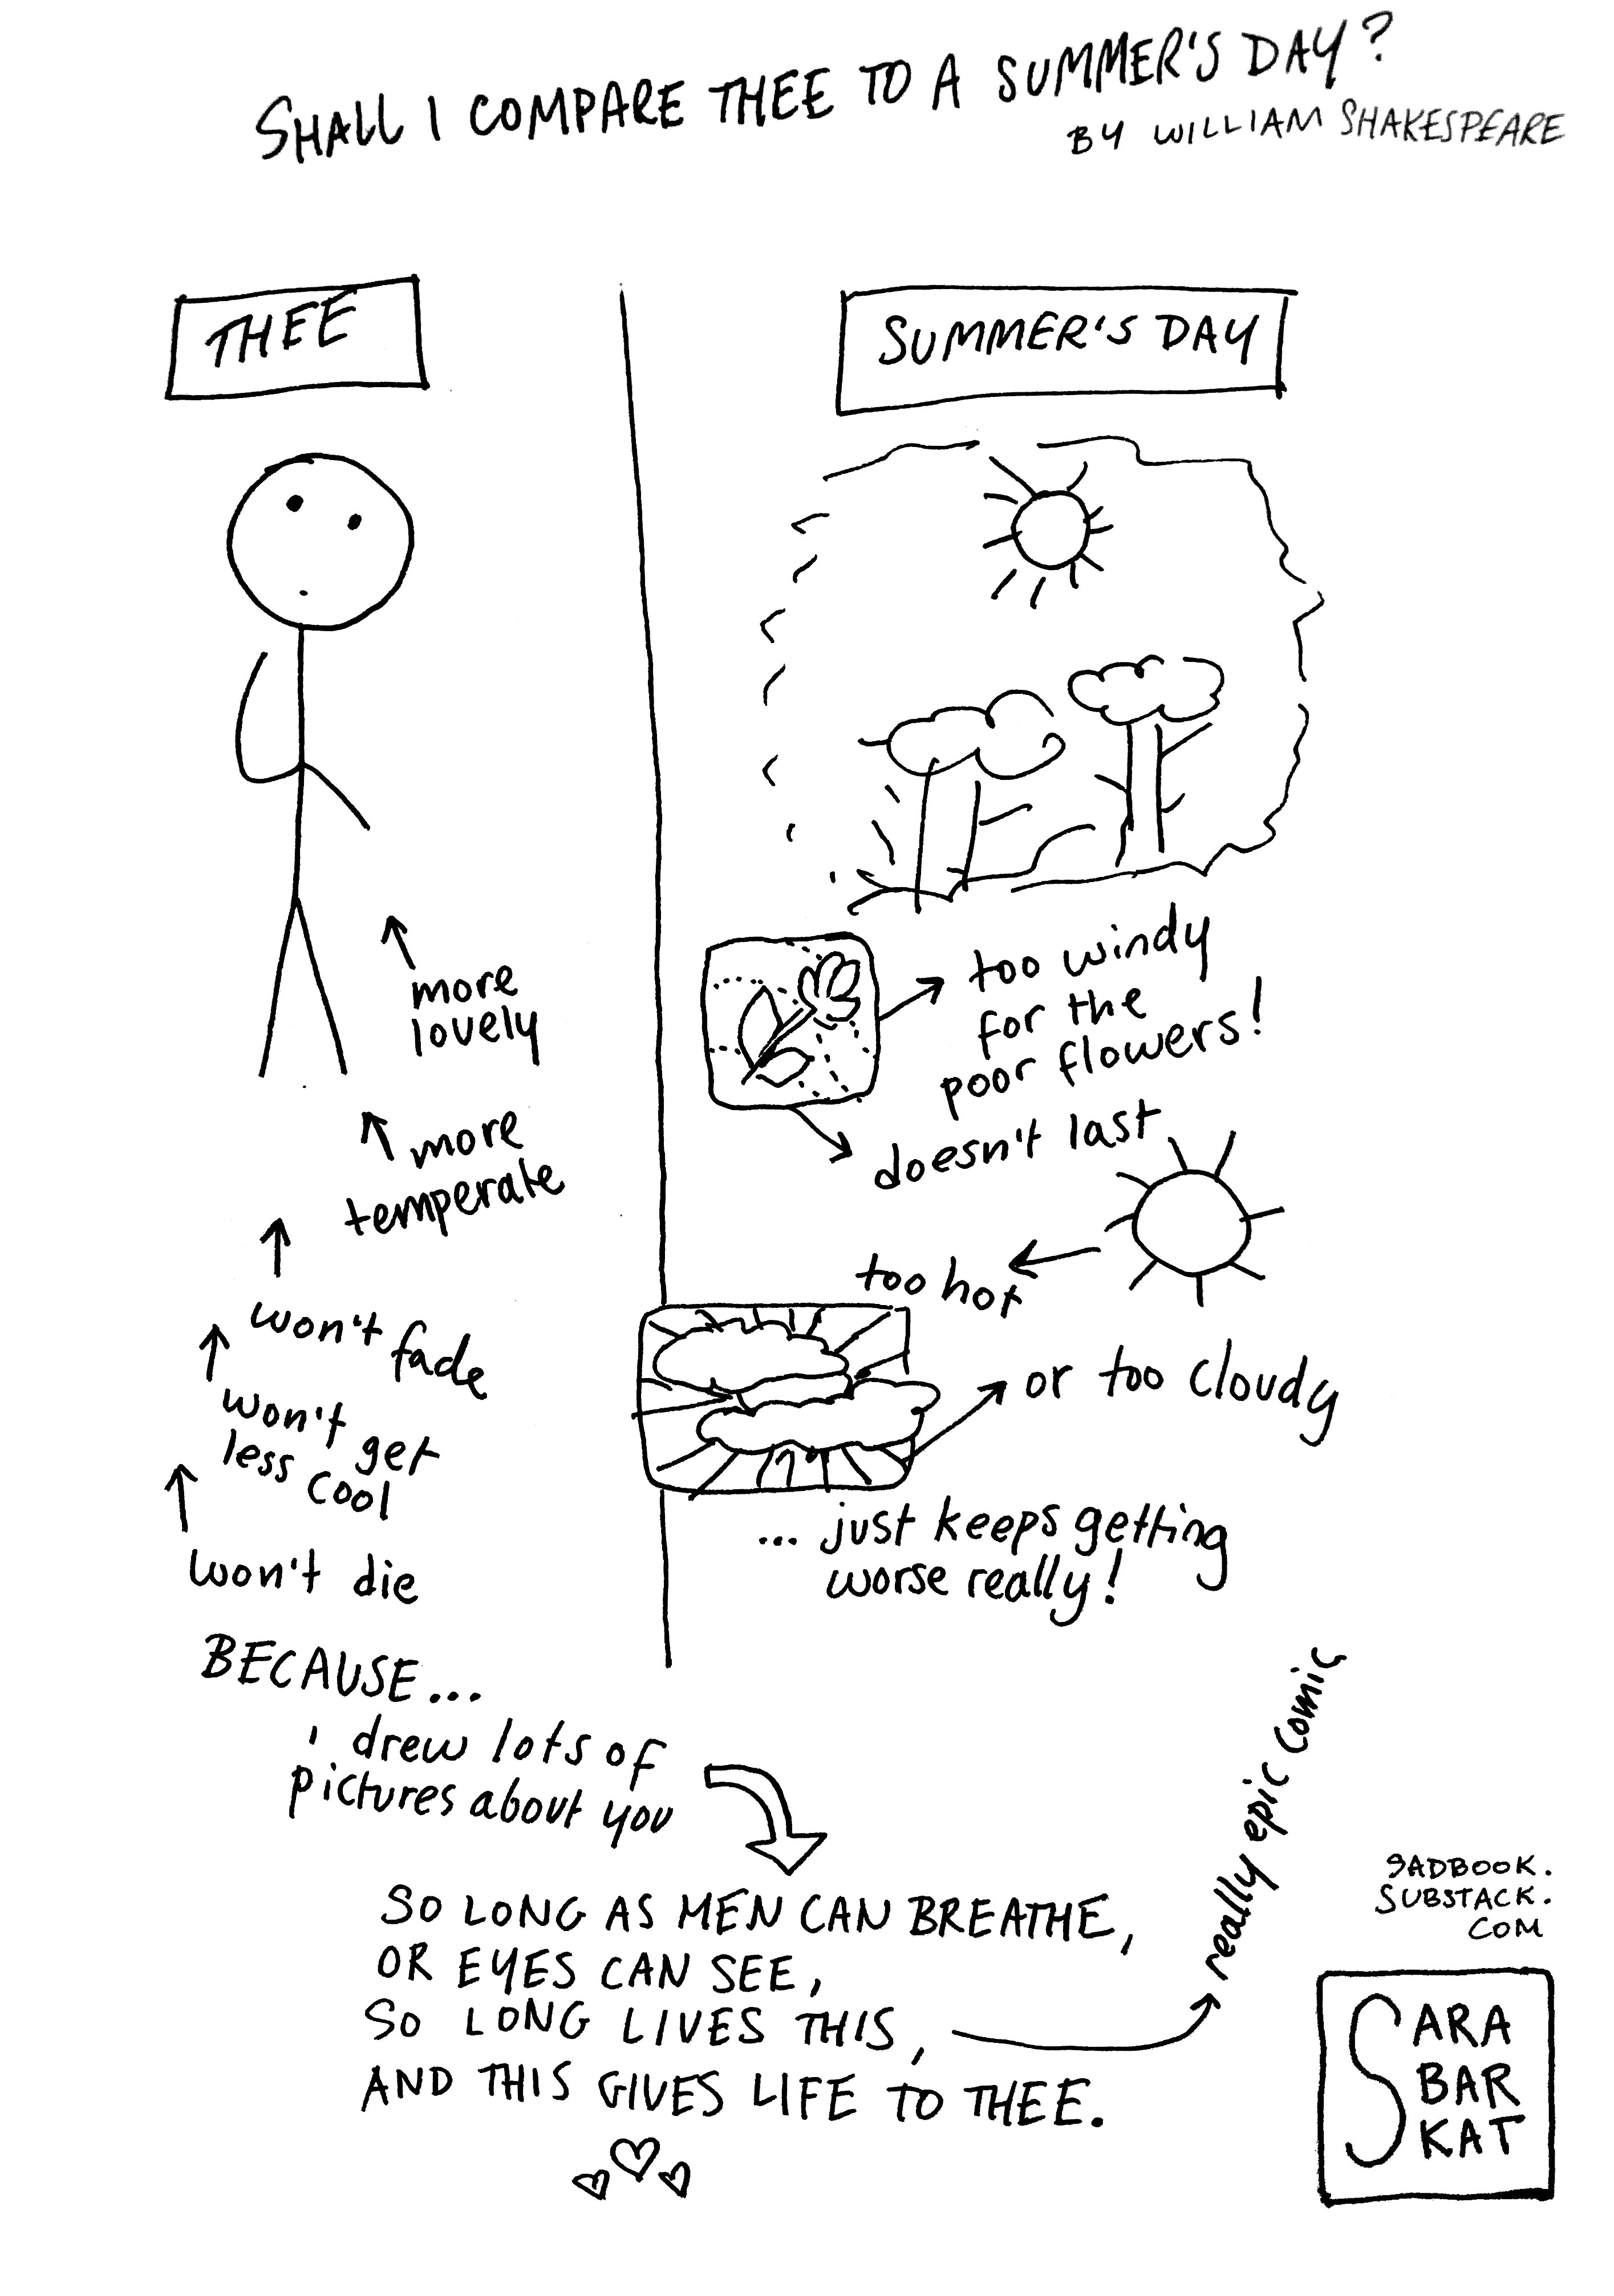 SHALL I COMPARE THEE TO A SUMMER'S DAY?
BY WILLIAM SHAKESPEARE
THEE
more
lovely
more
temperate
won't fade
won't get
less cool
won't die
BECAUSE...
i drew lots of
pictures about you
SUMMER'S DAY
too windy
for the
poor flowers!
doesn't last
too hot
or too cloudy
... just keeps getting
worse really!
SO LONG AS MEN CAN BREATHE,
OR EYES CAN SEE,
SO LONG LIVES THIS,
AND THIS GIVES LIFE TO THEE.
really epic comic
SADBOOK.
SUBSTACK.
COM
SARA
BAR
KAT